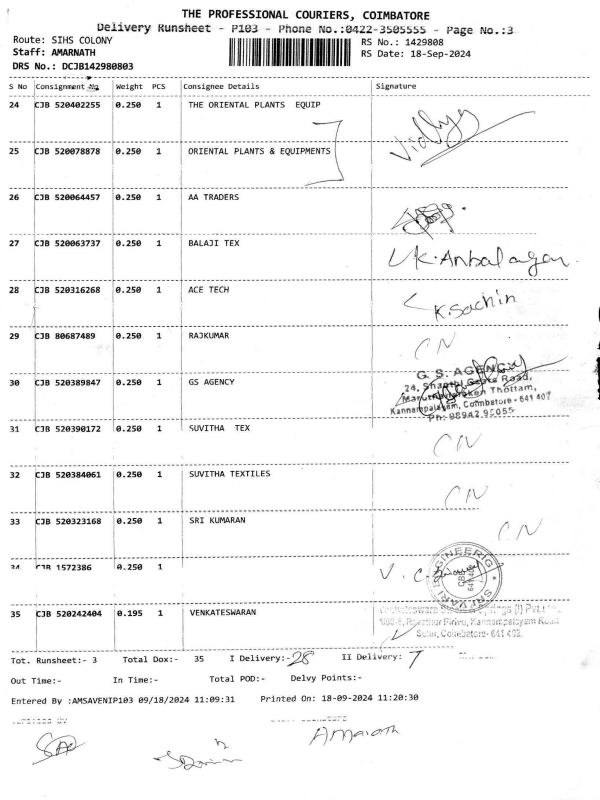 THE PROFESSIONAL COURIERS, COIMBATORE
Delivery Runsheet - P103 - Phone No.:0422-3505555 - Page No.:3
Route: SIHS COLONY RS No.: 1429808
Staff: AMARNATH RS Date: 18-Sep-2024
DRS No.: DCJB142980803
S No Consignment No Weight PCS Consignee Details Signature
24 CJB 520402255 0.250 1 THE ORIENTAL PLANTS EQUIP
Vidhya
25 CJB 520078878 0.250 1 ORIENTAL PLANTS & EQUIPMENTS
26 CJB 520064457 0.250 1 AA TRADERS
27 CJB 520063737 0.250 1 BALAJI TEX
K. Anbalagan.
28 CJB 520316268 0.250 1 ACE TECH
K. Sachin
29 CJB 80687489 0.250 1 RAJKUMAR CN
G. S. AGENCY
30 CJB 520389847 0.250 1 GS AGENCY 24, Road,
Thottam,
Kannampalayam, Coimbatore - 641 402
Ph: 98942 95055
31 CJB 520390172 0.250 1 SUVITHA TEX
CN
32 CJB 520384061 0.250 1 SUVITHA TEXTILES
CN
33 CJB 520323168 0.250 1 SRI KUMARAN
CN
34 CJB 1572386 0.250 1 V. C.
35 CJB 520242404 0.195 1 VENKATESWARAN
Pirivu, Kannampalayam Road
Sulur, Coimbatore- 641 402.
Tot. Runsheet:- 3 Total Dox:- 35 I Delivery:- 28 II Delivery: 7
Out Time:- In Time:- Total POD:- Delvy Points:-
Entered By :AMSAVENIP103 09/18/2024 11:09:31 Printed On: 18-09-2024 11:20:30
Amarnath